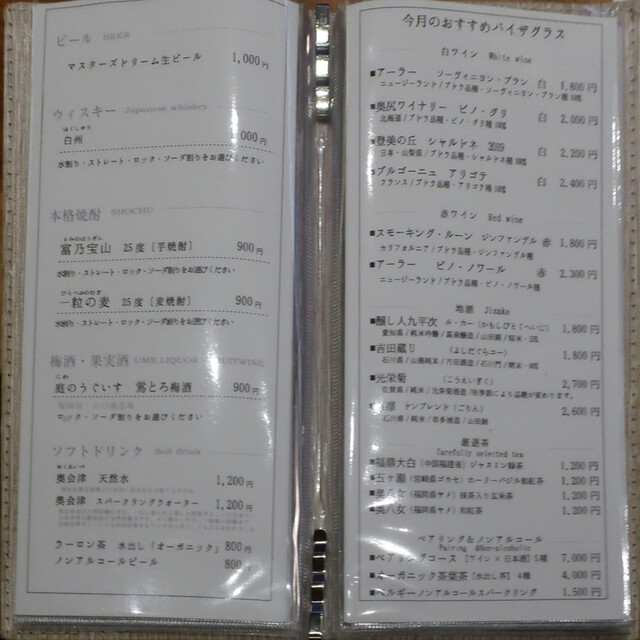 ビール BEER
マスターズドリーム生ビール 1,000円
ウィスキー Japanese whiskey
はくしゅう
白州 ,000円
水割り・ストレート・ロック・ソーダ割りをお選びください
本格焼酎 SHOCHU
とみのほうざん
富乃宝山 25度 [芋焼酎] 900円
水割り・ストレート・ロック・ソーダ割りをお選びください
いっつぶのむぎ
一粒の麦 25度 [麦焼酎] 900円
水割り・ストレート・ロック・ソーダ割りをお選びください
梅酒・果実酒 UME LIQUOR FRUITWINE
にわ
庭のうぐいす 鶯とろ梅酒 900円
ロック・ソーダ割りをお選びください
ソフトドリンク Soft drink
おくあいづ
奥会津 天然水 1,200円
奥会津 スパークリングウォーター 1,200円
ウーロン茶 水出し「オーガニック」 800円
ノンアルコールビール 800円
今月のおすすめバイザグラス
白ワイン White wine
■アーラー ソーヴィニヨン・ブラン 白 1,800円
ニュージーランド/ブドウ品種・ソーヴィニヨン・ブラン種 100%
■奥尻ワイナリー ピノ・グリ 白 2,000円
北海道/ブドウ品種・ピノ・グリ種 100%
■登美の丘 シャルドネ 2019 白 2,200円
日本・山梨県/ブドウ品種・シャルドネ種 100%
■ブルゴーニュ アリゴテ 白 2,400円
フランス/ブドウ品種・アリゴテ種 100%
赤ワイン Red wine
■スモーキング・ルーン ジンファンデル 赤 1,800円
カリフォルニア/ブドウ品種・ジンファンデル種
■アーラー ピノ・ノワール 赤 2,300円
ニュージーランド/ブドウ品種・ピノ・ノワール種
地酒 Jizake
■醸し人九平次 ル・カー (かもしびとくへいじ) 1,800円
愛知県/純米吟醸/萬乗醸造/山田錦/
■吉田蔵U (よしだぐらユー) 1,800円
石川県/山廃純米/吉田酒造/石川門/
■光栄菊 (こうえいぎく) 2,700円
佐賀県/純米/光栄菊酒造/
凛 ドンブレンド (ごりん) 2,600円
石川県/純米/車多酒造/山田錦
厳選茶
Carefully selected tea
■福鼎大白 (中国福建省) ジャスミン緑茶 1,200円
■五ヶ瀬 (宮崎県ゴカセ) ホーリーバジル和紅茶 1,200円
女 (福岡県ヤメ) 抹茶入り玄米茶 1,200円
■奥八女 (福岡県ヤメ) 和紅茶 1,200円
ペアリング&ノンアルコール
Pairing &Non-alcoholic
■ペアリングコース [ワイン × 日本酒] 5種 7,000円
■オーガニック茶葉茶 [水出し茶] 4種 4,000円
■ベルギーノンアルコールスパークリング 1,500円